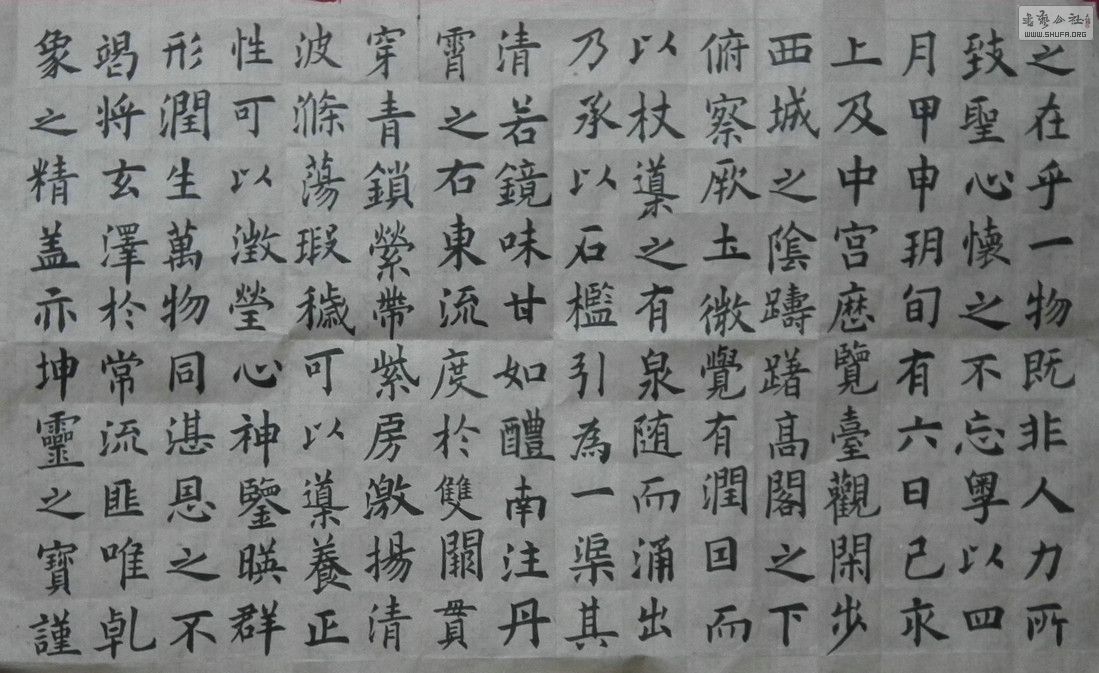 之在乎一物既非人力所
致聖心懷之不忘粤以四
月甲申朔旬有六日己亥
上及中宫歷覽臺觀閑步
西城之陰躊躇高閣之下
俯察厥土微覺有潤因而
以杖導之有泉随而涌出
乃承以石檻引為一渠其
清若鏡味甘如醴南注丹
霄之右東流度於雙闕貫
穿青鎖縈帶紫房激揚清
波滌蕩瑕穢可以導養正
性可以澂瑩心神鑒暎群
形潤生萬物同湛恩之不
竭将玄澤於常流匪唯乹
象之精盖亦坤靈之寶謹
书艺公社
WWW.SHUFA.ORG